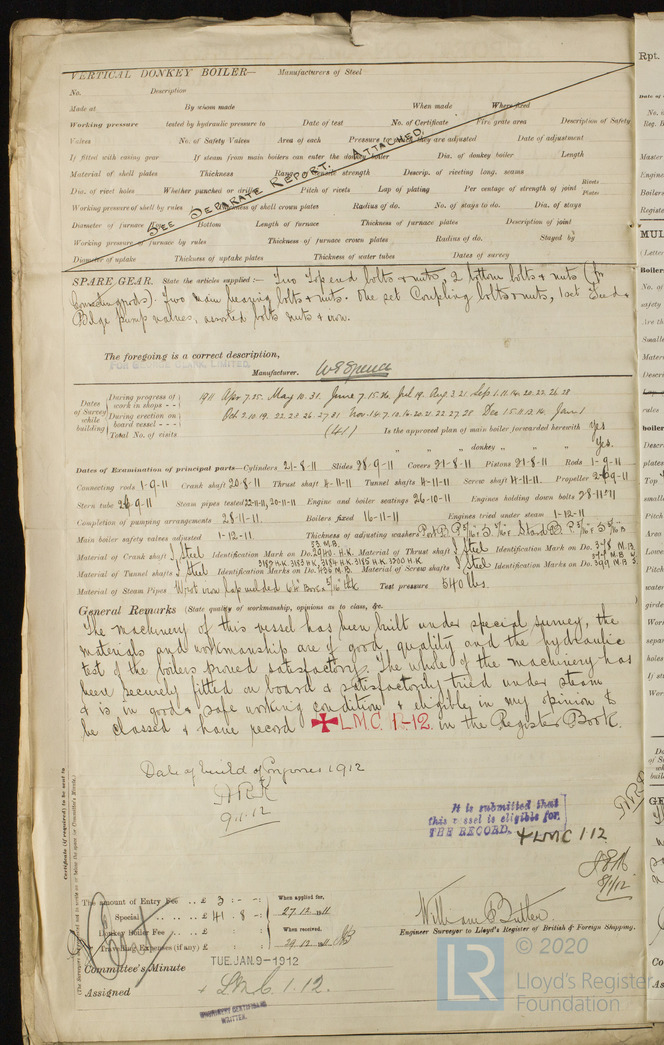 VERTICAL DONKEY BOILER— Manufacturers of Steel
No. Description
Made at By whom made When made Where fixed
Working pressure tested by hydraulic pressure to Date of test No. of Certificate Fire grate area Description of Safety
Valves No. of Safety Valves Area of each Pressure to which they are adjusted Date of adjustment
If fitted with easing gear If steam from main boilers can enter the donkey boiler Dia. of donkey boiler Length
Material of shell plates Thickness Range of tensile strength Descrip. of riveting long. seams
Dia. of rivet holes Whether punched or drilled Pitch of rivets Lap of plating Per centage of strength of joint Rivets Plates
Working pressure of shell by rules Thickness of shell crown plates Radius of do. No. of stays to do. Dia. of stays
Diameter of furnace Bottom Length of furnace Thickness of furnace plates Description of joint
Working pressure of furnace by rules Thickness of furnace crown plates Radius of do. Stayed by
Diameter of uptake Thickness of uptake plates Thickness of water tubes Dates of survey
SEE SEPARATE REPORT. ATTACHED.
SPARE GEAR. State the articles supplied:— Two Top end bolts & nuts, 2 bottom bolts & nuts (for
Connecting rods). Two main bearing bolts & nuts. One set Coupling bolts & nuts, 1 set Feed &
Bilge pump valves, assorted bolts nuts & iron.
The foregoing is a correct description,
FOR GEORGE CLARK, LIMITED,
Manufacturer.
Dates of Survey while building
During progress of work in shops - - 1911 Apr 7.25. May 10.31. June 7.15.26. Jul 19. Aug 3.21 Sept 1.11.14.20.22.26.28
During erection on board vessel - - - Oct 2.10.19.22.23.26.27.31 Nov 1.4.7.13.16.20.21.22.27.28 Dec 1.5.11.12.14. Jan 1
Total No. of visits (41) Is the approved plan of main boiler forwarded herewith Yes
" " " donkey " " " Yes.
Dates of Examination of principal parts—Cylinders 21-8-11 Slides 28-9-11 Covers 21-8-11 Pistons 21-8-11 Rods 1-9-11
Connecting rods 1-9-11 Crank shaft 20-8-11 Thrust shaft 4-11-11 Tunnel shafts 4-11-11 Screw shaft 4-11-11. Propeller 26-9-11
Stern tube 26-9-11 Steam pipes tested 22-11-11, 20-11-11 Engine and boiler seatings 26-10-11 Engines holding down bolts 28-11-11
Completion of pumping arrangements 28-11-11. Boilers fixed 16-11-11 Engines tried under steam 1-12-11
Main boiler safety valves adjusted 1-12-11. Thickness of adjusting washers
Material of Crank shaft I Steel Identification Mark on Do. 2940. H.K. Material of Thrust shaft I Steel Identification Mark on Do.
Material of Tunnel shafts I Steel Identification Marks on Do. 456 M.B. Material of Screw shafts I Steel Identification Marks on Do.
Material of Steam Pipes Wrot iron lap welded Test pressure 540 lbs.
General Remarks (State quality of workmanship, opinions as to class, &c.
The machinery of this vessel has been built under special survey, the
materials and workmanship are of good quality and the hydraulic
test of the boilers proved satisfactory. The whole of the machinery has
been securely fitted on board & satisfactorily tried under steam
& is in good & safe working condition & eligible in my opinion to
be classed & have record ✠ L.M.C. 1-12. in the Register Book.
Date of build of Engines 1912
9.1.12
It is submitted that
this vessel is eligible for
THE RECORD. + LMC 1 12
8/1/12
Certificate (if required) to be sent to
The amount of Entry Fee .. £ 3 : - : -
Special .. .. £ 41 . 8 : -
Donkey Boiler Fee .. .. £ : :
Travelling Expenses (if any) £ : :
When applied for,
27.12.1911
When received,
29.12.1911
William Butler
Engineer Surveyor to Lloyd's Register of British & Foreign Shipping.
Committee's Minute TUE. JAN. 9-1912
Assigned + L.M.C. 1.12.
MACHINERY CERTIFICATE
WRITTEN.
© 2020
LR
Lloyd's Register
Foundation
Rpt.